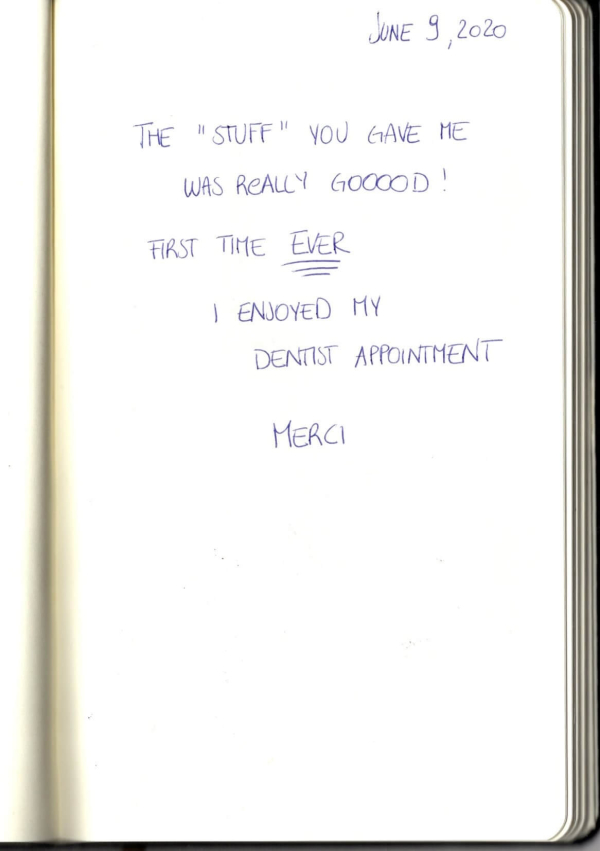 JUNE 9, 2020
THE "STUFF" YOU GAVE ME
WAS REALLY GOOOOD!
FIRST TIME EVER
I ENJOYED MY
DENTIST APPOINTMENT
MERCI